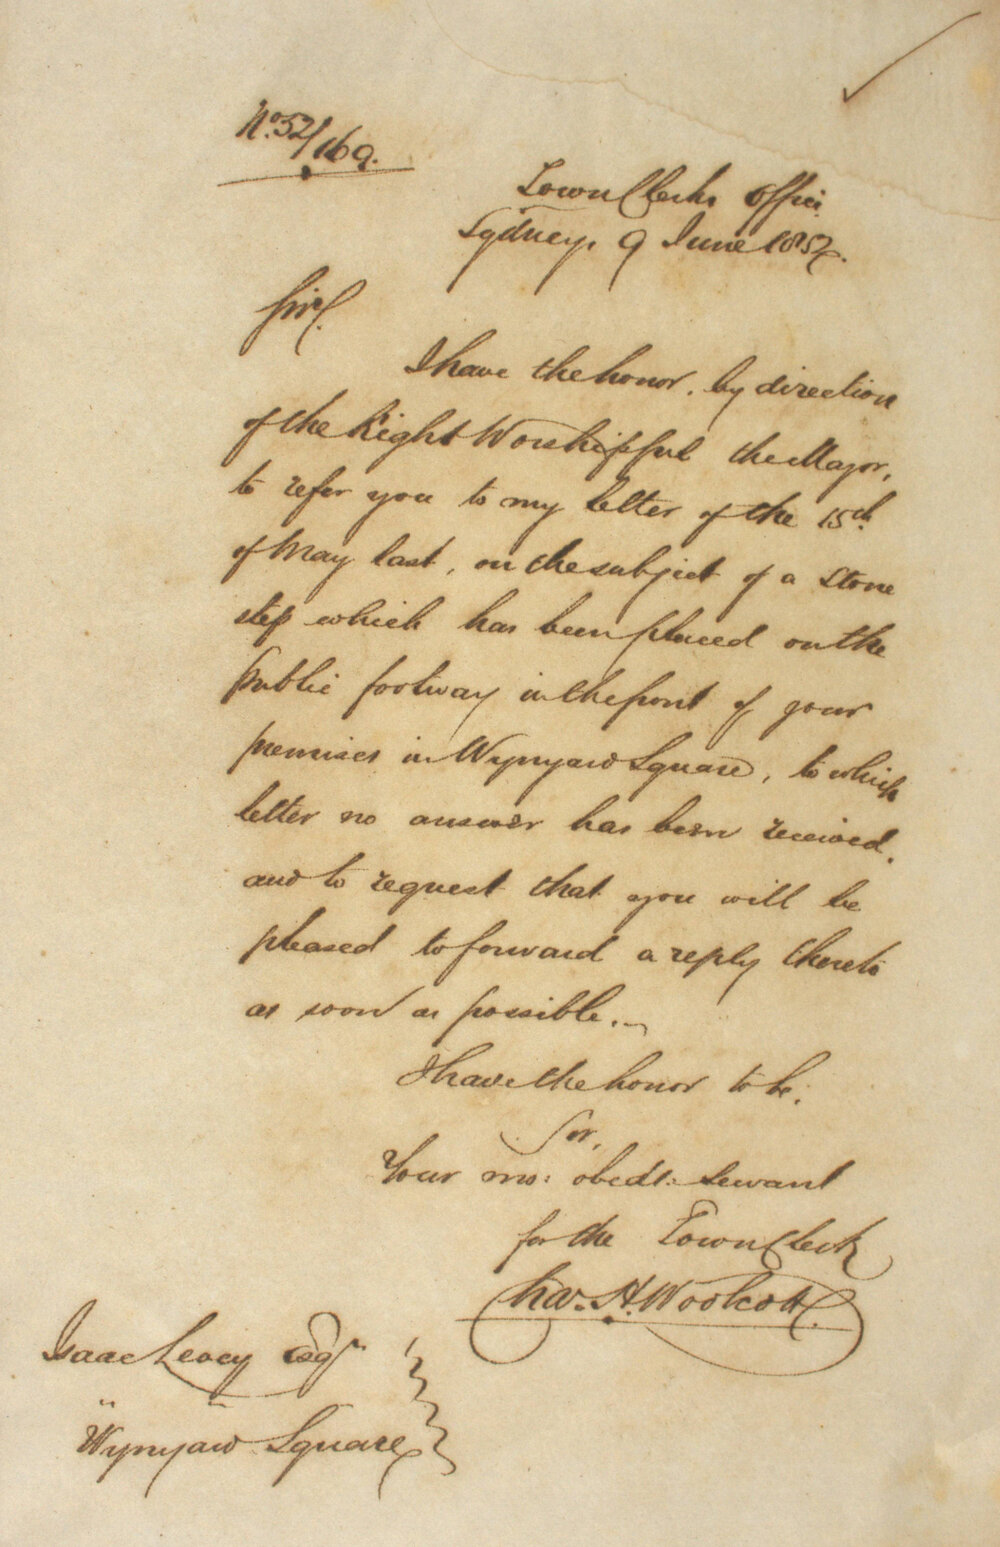 No. 52/169.
Town Clerks Office
Sydney, 9 June 1852.
Sir,
I have the honor, by direction
of the Right Worshipful the Mayor,
to refer you to my letter of the 15th.
of May last, on the subject of a Stone
step which has been placed on the
public footway in the front of your
premises in Wynyard Square, to which
letter no answer has been received.
and to request that you will be
pleased to forward a reply thereto
as soon as possible.
I have the honor to be,
Sir,
Your mo: obedt: Servant
for the Town Clerk
Chas. H. Woolcott.
Isaac Levey Esqr
Wynyard Square